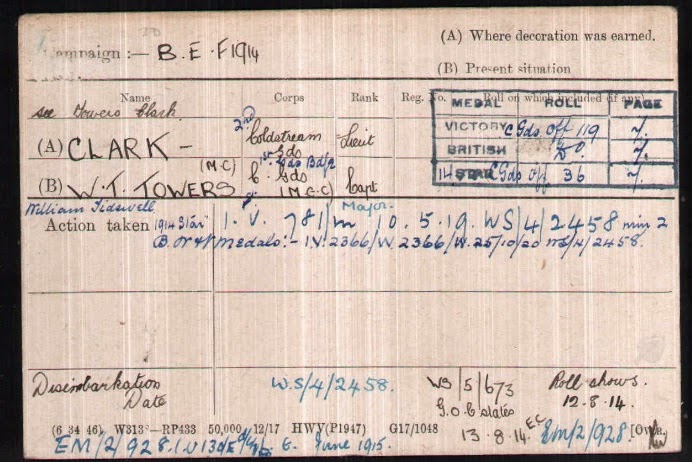 Campaign :— B.E.F 1914
(A) Where decoration was earned.
(B) Present situation
Name Corps Rank Reg. No. Roll on which included (if any)
MEDAL ROLL PAGE
see Towers Clark
VICTORY C Gds Off 119 7.
(A) CLARK — 2nd Coldstream Gds Lieut
BRITISH Do. 7.
(B) W.T. TOWERS (M.C) C. Gds (M.G.C) Capt
14 STAR C Gds Off 36 7.
William Tidswell Major.
Action taken 1914 Star I.V. 781 m 10.5.19. WS/4/2458 min 2
B.W & V Medals:- I.V. 2366/W. 2366/W. 25/10/20 WS/4/2458.
Disembarkation Date
W.S/4/2458.
WS/5/673
G.O.C states
13.8.14.
Roll shows.
12.8.14.
(6 34 46) W313—RP433 50,000 12/17 HWV(P1947) G17/1048 [Over.
EM/2/928. June 1915. EM/2/928